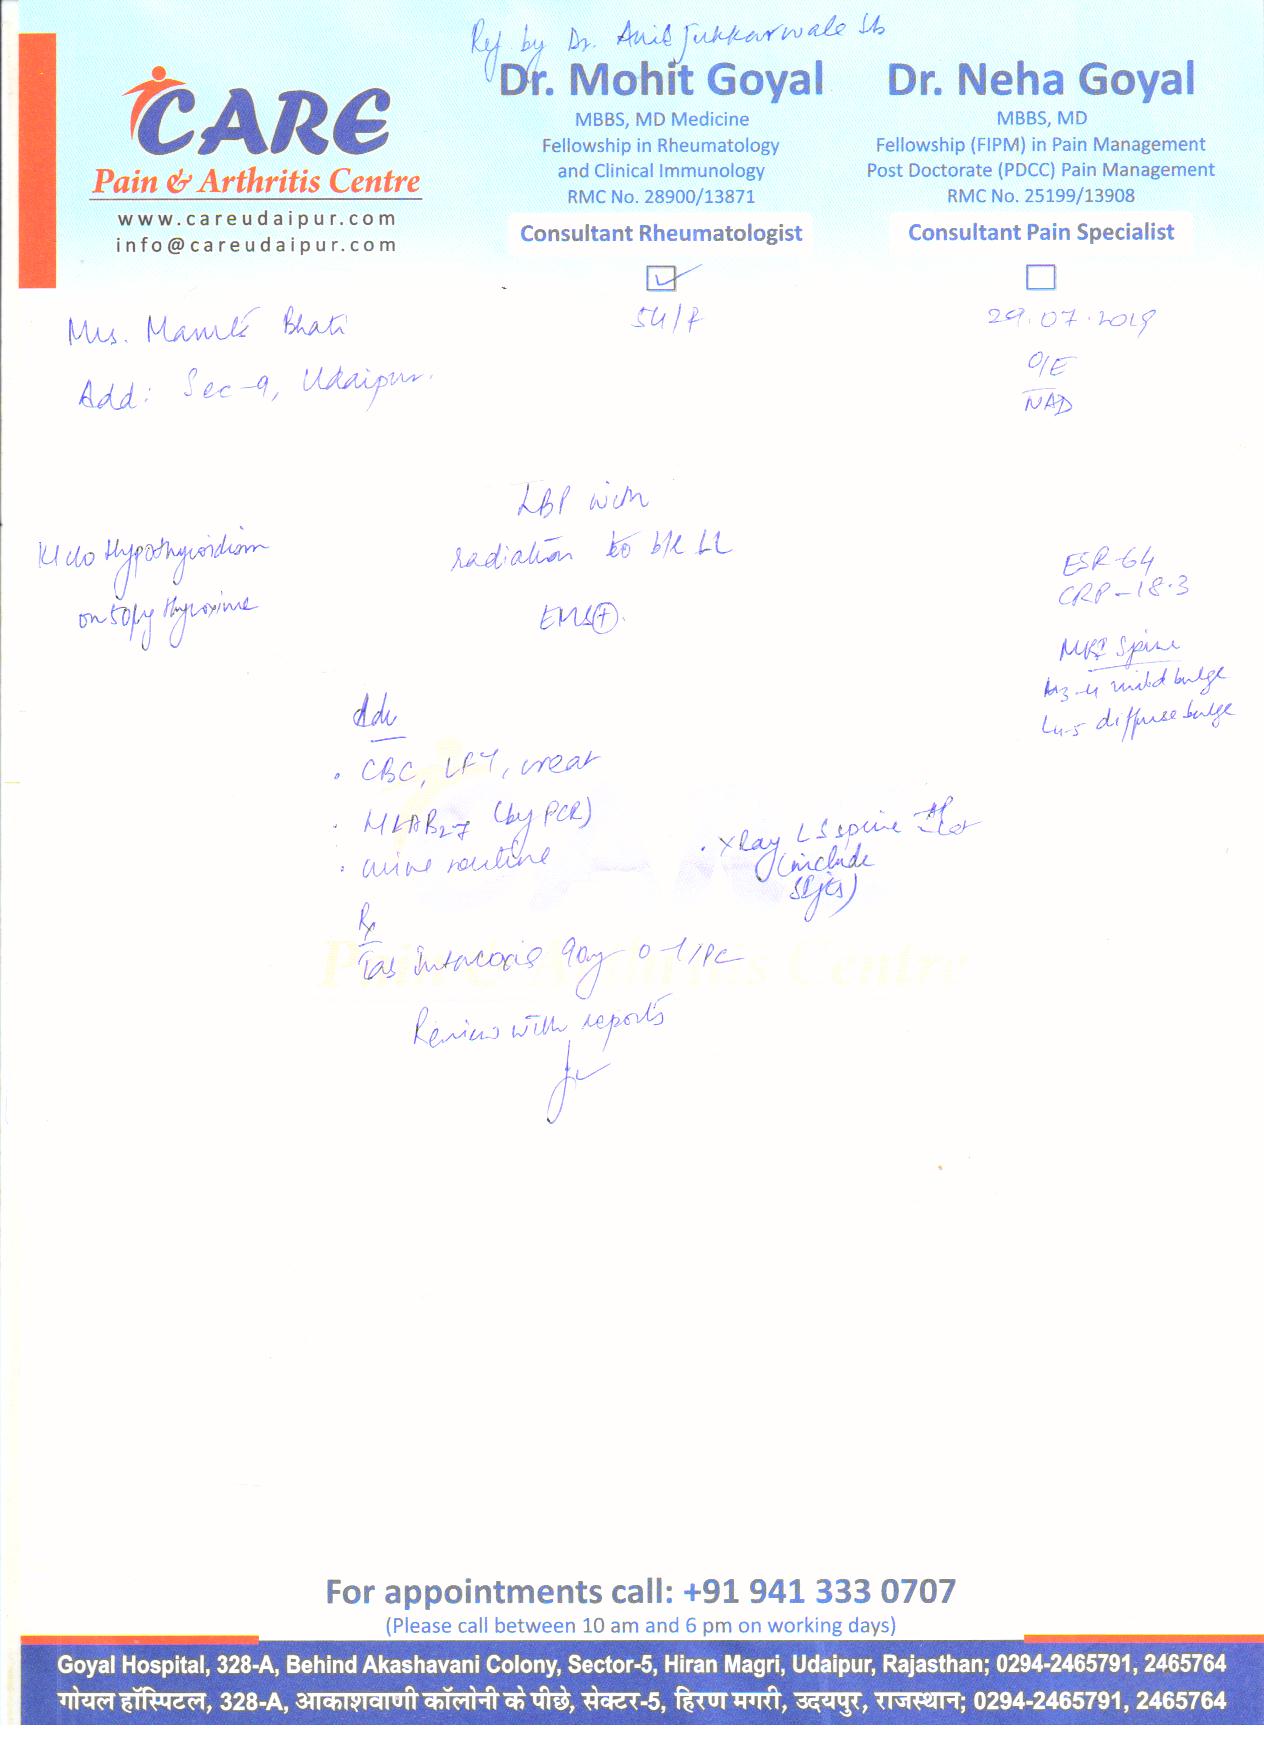 Ref by Dr. Anil
CARE
Pain & Arthritis Centre
www.careudaipur.com
info@careudaipur.com
Dr. Mohit Goyal
MBBS, MD Medicine
Fellowship in Rheumatology
and Clinical Immunology
RMC No. 28900/13871
Consultant Rheumatologist
Dr. Neha Goyal
MBBS, MD
Fellowship (FIPM) in Pain Management
Post Doctorate (PDCC) Pain Management
RMC No. 25199/13908
Consultant Pain Specialist
Mrs. Bhati
54/F
29.07.2019
Add: Sec-9, Udaipur.
O/E
NAD
LBP with
radiation to b/l LL
EMS(+).
K/c/o Hypothyroidism
on 50µg thyroxine
ESR-64
CRP-18.3
MRI Spine
L3-4 mild bulge
L4-5 diffuse bulge
Adv
. CBC, LFT, creat
. HLAB27 (by PCR)
. urine routine
. XRay LS spine AP Lat
(include
SI jts)
Rx
Tab Intacoxia 90mg 0-1/PC
Review with reports
Pain & Arthritis Centre
For appointments call: +91 941 333 0707
(Please call between 10 am and 6 pm on working days)
Goyal Hospital, 328-A, Behind Akashavani Colony, Sector-5, Hiran Magri, Udaipur, Rajasthan; 0294-2465791, 2465764
गोयल हॉस्पिटल, 328-A, आकाशवाणी कॉलोनी के पीछे, सेक्टर-5, हिरण मगरी, उदयपुर, राजस्थान; 0294-2465791, 2465764